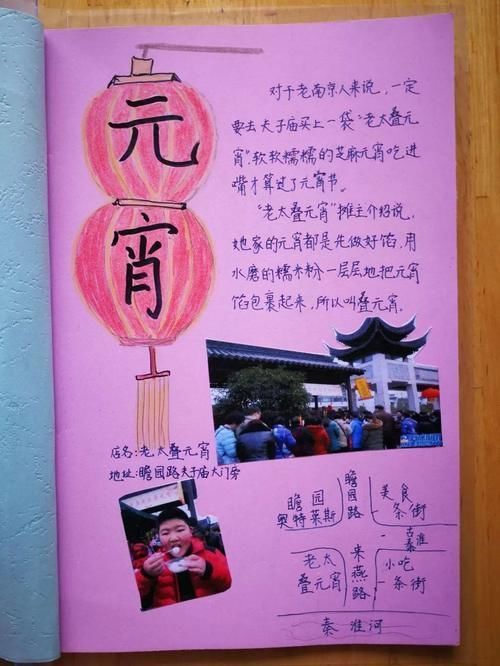 元
宵
对于老南京人来说，一定
要去夫子庙买上一袋“老太叠元
宵”，软软糯糯的芝麻元宵吃进
嘴才算过了元宵节。
“老太叠元宵”摊主介绍说，
她家的元宵都是先做好馅，用
水磨的糯米粉一层层地把元宵
馅包裹起来，所以叫叠元宵。
店名：老太叠元宵
地址：瞻园路夫子庙大门旁
瞻园
奥特莱斯
瞻园路
美食
一条街
古秦淮
老太
叠元宵
来燕路
小吃
一条街
秦淮河